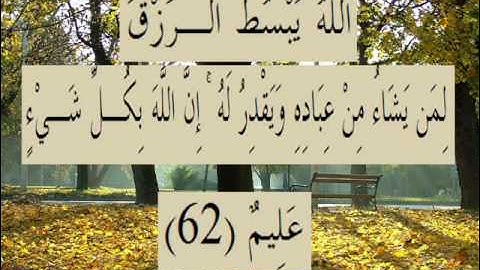 اللَّهُ يَبْسُطُ الـــرِّزْقَ
لِمَن يَشَاءُ مِنْ عِبَادِهِ وَيَقْدِرُ لَهُ ۚ إِنَّ اللَّهَ بِكُـــلِّ شَـــيْءٍ
عَلِيمٌ (62)